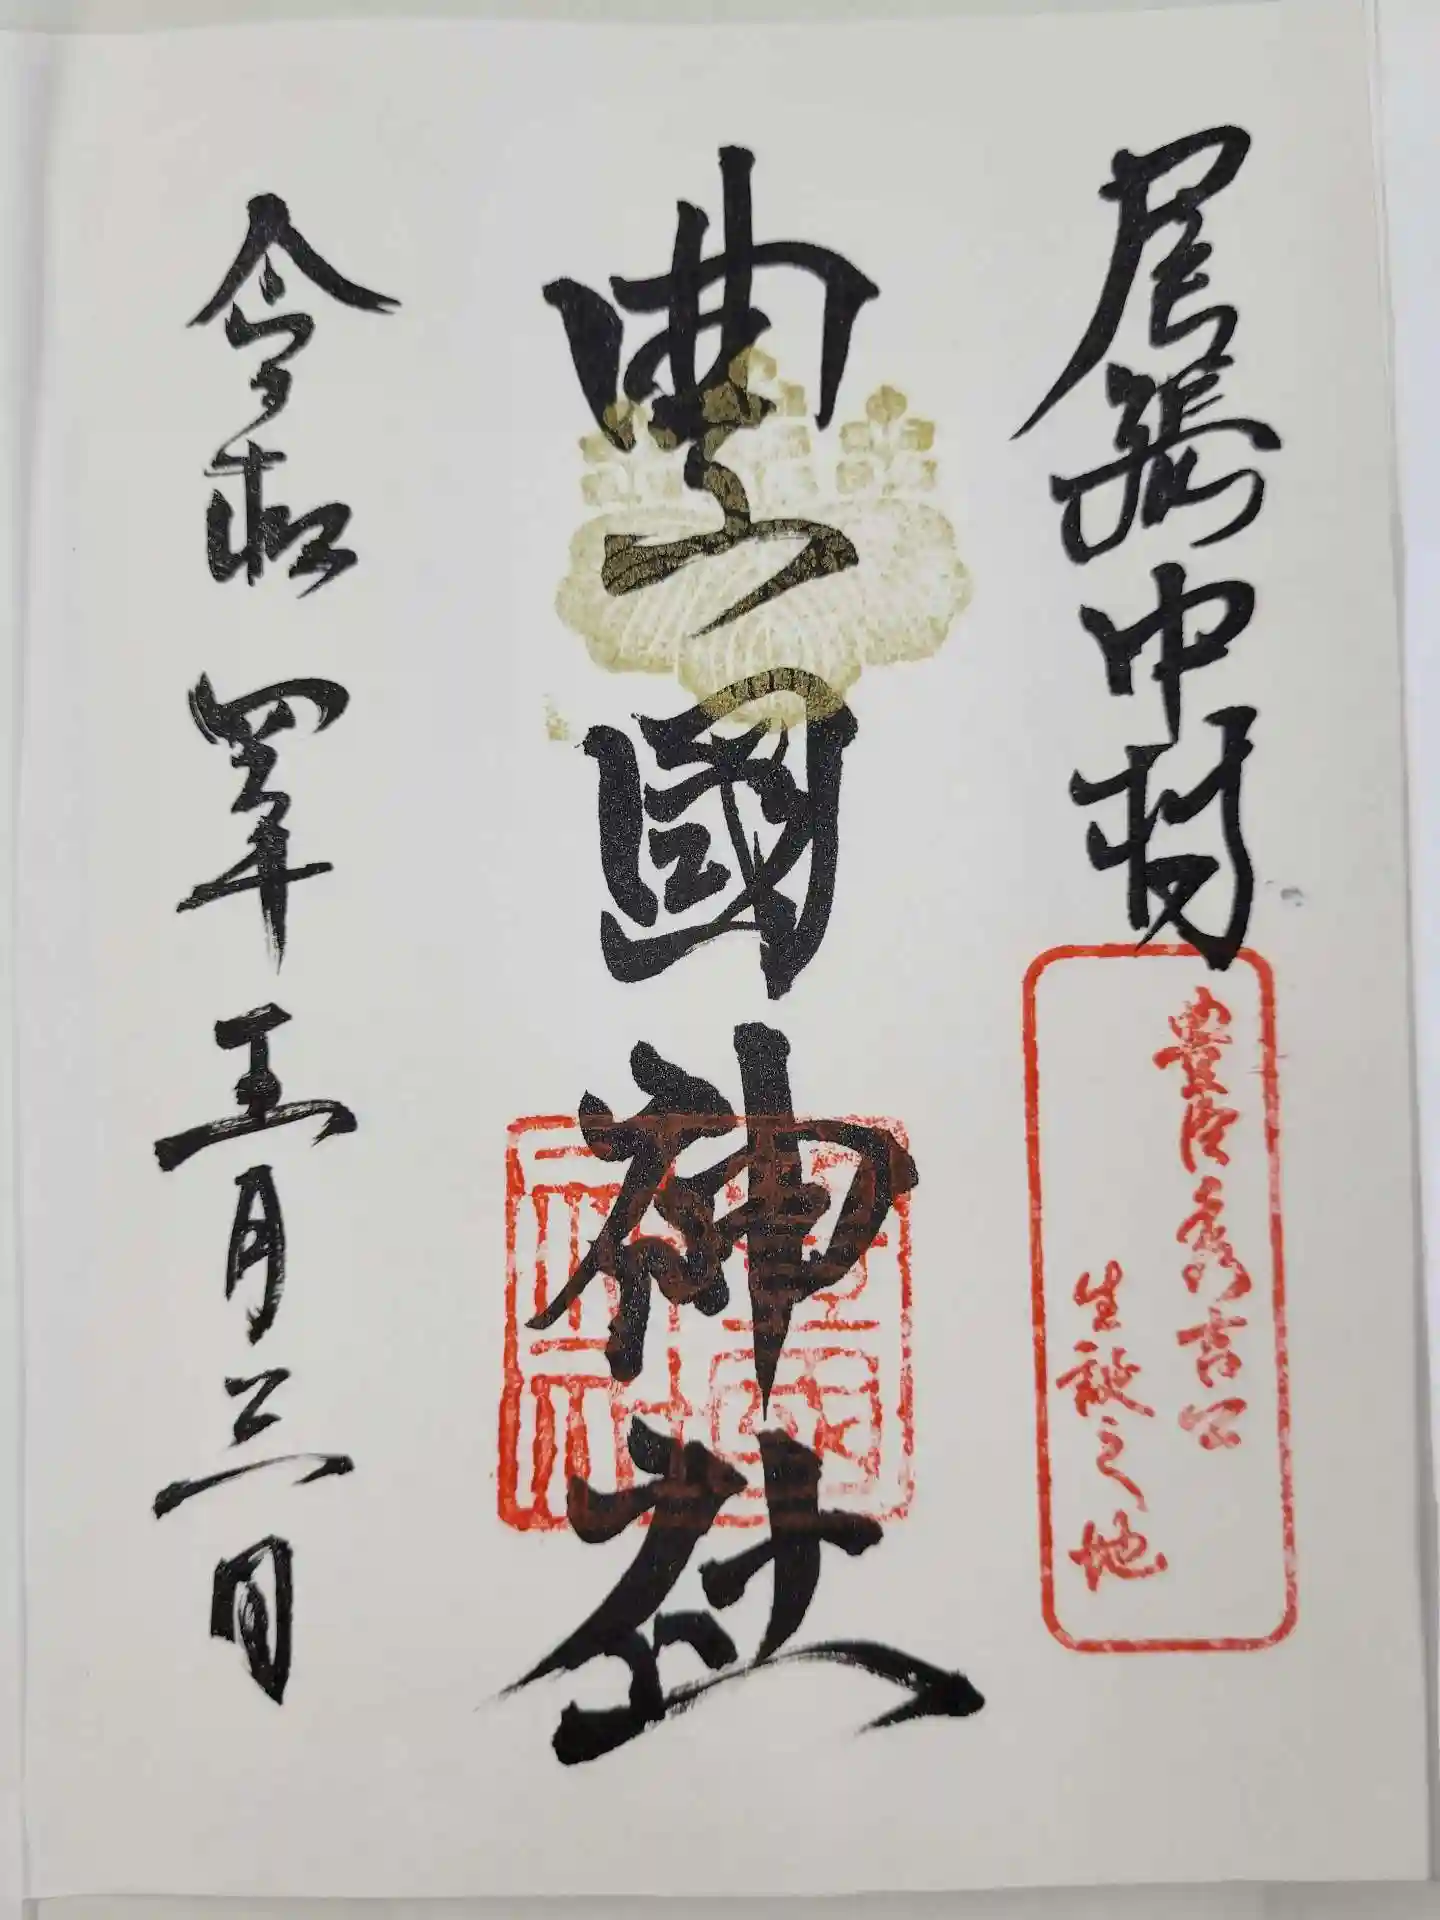 尾張中村
豊臣秀吉公
生誕之地
豊國神社
豊國
神社
令和四年五月三日